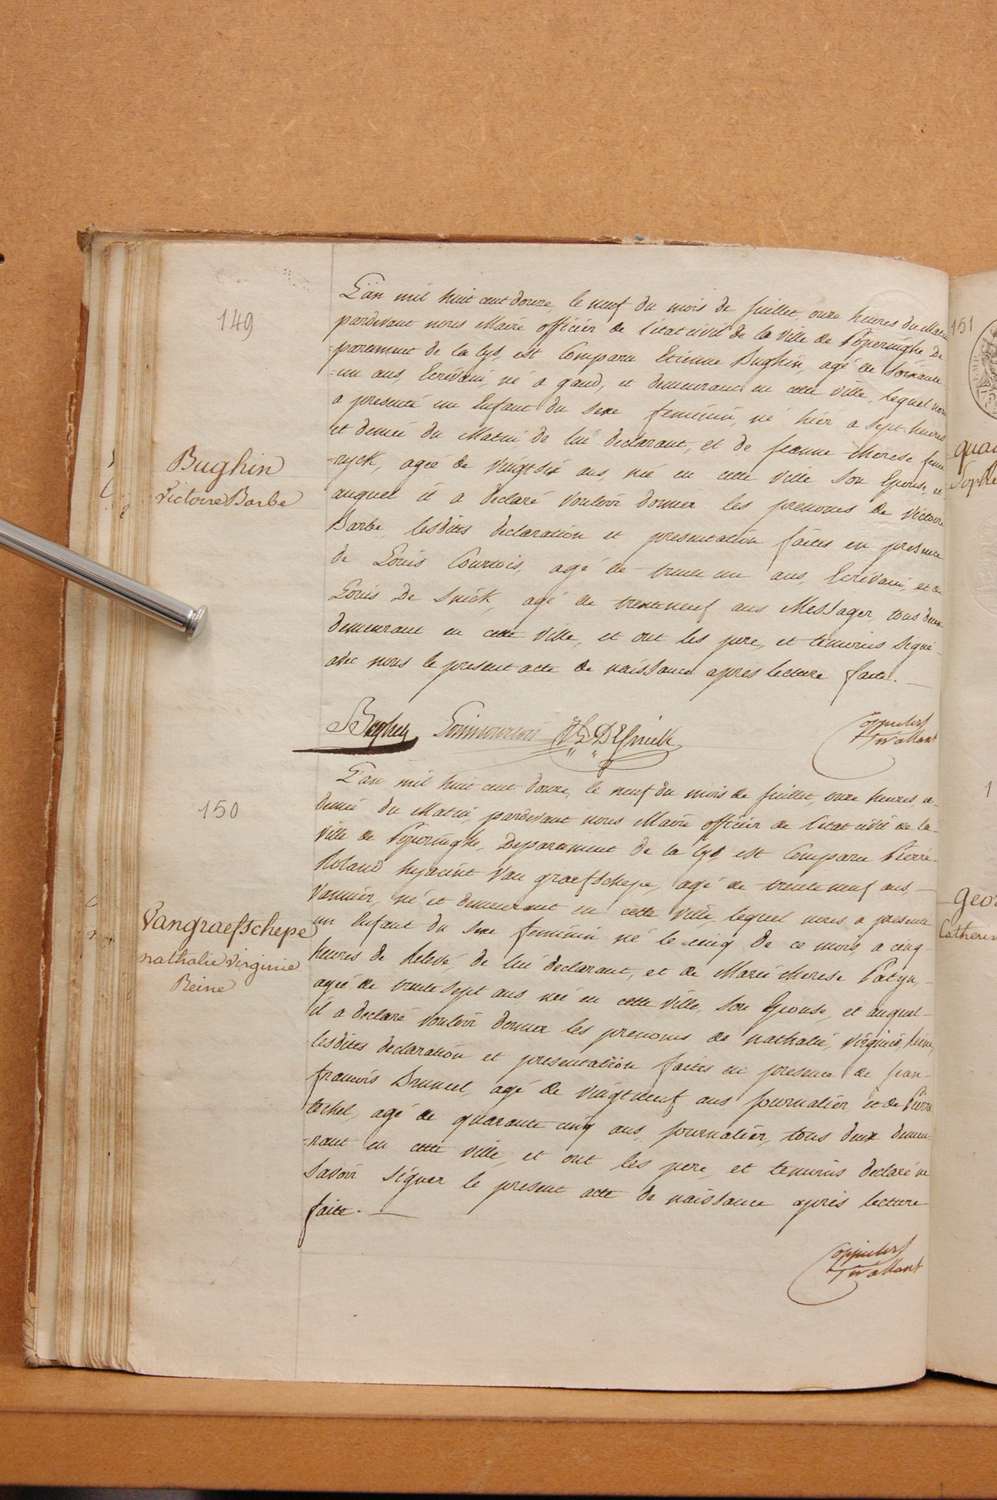 149
Bughin
Victoire Barbe
L'an mil huit cent douze, le neuf du mois de juillet, onze heures du matin
pardevant nous Maire officier de l'état civil de la ville de Poperinghe De
-partement de la Lys, est Comparu Etienne Bughin, agé de Soixante
-un ans, Ecrivain, né a gand, et demeurant en cette ville, lequel nous
a presenté un Enfant du Sexe feminin, né hier a Sept heures
et demie du Matin de lui declarant, et de jeanne therese
-ryck, agée de vingt six ans née en cette ville Son Epouse, et
auquel il a declaré vouloir donner les prenoms de Victoire
Barbe, lesdites declaration et presentation faites en presence
de Louis Courtois, agé de trente un ans, Ecrivain, et de
Louis De Snick, agé de trenteneuf ans Messager, tous deux
demeurant en cette ville, et ont les pere, et temoins Signé
avec nous le present acte de naissance apres lecture faite.
Bughin DeSnick
150
Vangraefschepe
nathalie virginie
Reine
L'an mil huit cent douze, le neuf du mois de juillet onze heures
du Matin, pardevant nous Maire officier de l'état civil de la
ville de Poperinghe, Departement de la Lys est Comparu Pierre
Roland hyacint Van graefschepe, agé de trenteneuf ans
Vannier, né et demeurant en cette ville, lequel nous a presenté
un Enfant du Sexe feminin né le cinq De ce mois, a cinq
heures de relevé, de lui declarant, et de Marie therese
agée de trente Sept ans née en cette ville, Son Epouse, et auquel
il a declaré vouloir donner les prenoms de nathalie, virginie, Reine,
lesdites declaration et presentation faites en presence de jean
francois agé de vingtneuf ans journalier, et de Pierre
agé de quarante cinq ans, journalier, tous deux demeu
-rant en cette ville, et ont les pere, et temoins declaré ne
Savoir Signer le present acte de naissance après lecture
faite.
151